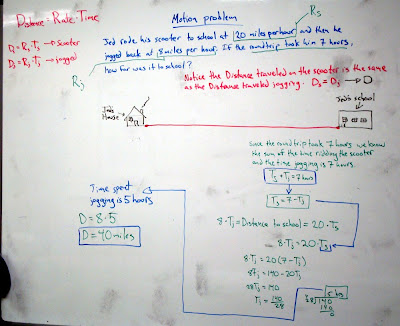 Distance = Rate · Time
Motion problem
Rs
D = Rs · Ts → Scooter
Ds = Rj · Tj → jogged
Jed rode his scooter to school at 20 miles per hour, and then he
jogged back at 8 miles per hour. If the roundtrip took him 7 hours,
how far was it to school?
Rj
Notice the Distance traveled on the scooter is the same
as the Distance traveled jogging. Ds = Dj → D
Jed's
House
Jed's school
Since the roundtrip took 7 hours we know
the sum of the time ridding the scooter
and the time jogging is 7 hours.
Ts + Tj = 7 hours
Ts = 7 - Tj
8 · Tj = Distance to school = 20 · Ts
8 · Tj = 20 · Ts
8Tj = 20(7 - Tj)
8Tj = 140 - 20Tj
28Tj = 140
Tj = 140/28
5 hrs
28 140
140
0
Time spent
jogging is 5 hours
D = 8 · 5
D = 40 miles